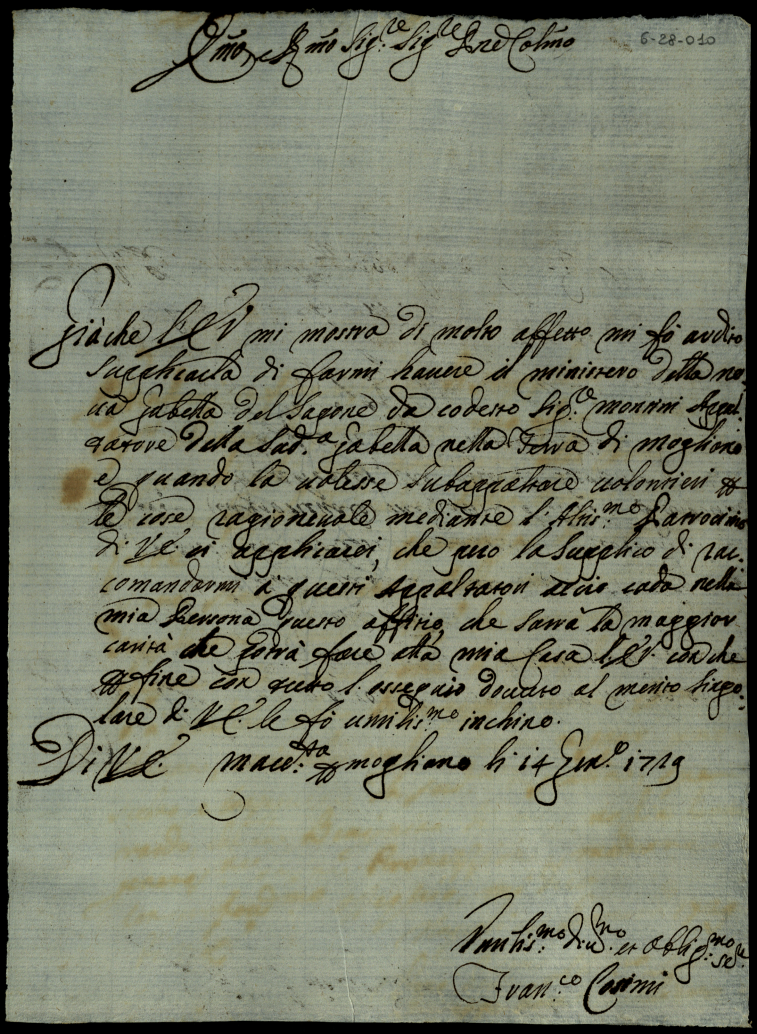 6-28-010
Ill:mo, e R:mo Sig:re Sig:re Pne Col:mo
Già che l'E.V. mi mostra di molto affetto mi fò ardito
supplicarla di farmi havere il ministero della no:
va gabella del sapone da codesto Sig:re Monrini Appal
tatore della sud.a gabella nella Terra di Mogliano
e quando la volesse subappaltare volontieri
le cose ragionevole mediante l'Altis:mo Patrocinio
di V.E. vi applicarei, che però la supplico di rac:
comandarmi a questi Appaltatori acciò cada nella
mia Persona questo affitio, che sarrà la maggior
carità che potrà fare alla mia Casa l'E.V. con che
per fine con tutto l'ossequio dovuto al merito singo:
lare di V.E. le fò umilis:mo inchino.
Di V.E. Macer:ta per Mogliano li 14 Gen:o 1729
Vmilis:mo Div:mo et Oblig:mo Se:re
Fran:co Cosimi